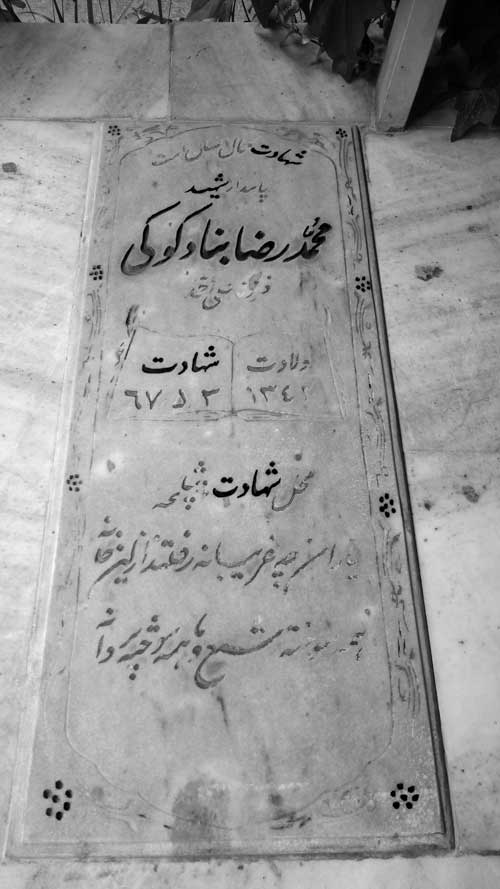 شهادت کمال انسان است
پاسدار شهید
محمدرضا بنادکوکی
فرزند
ولادت شهادت
۱۳۴۲ ۶۷ ۵ ۳
محل شهادت شلمچه
یاران چه غریبانه رفتند از این خانه
هم سوخته شمع ما هم سوخته پروانه